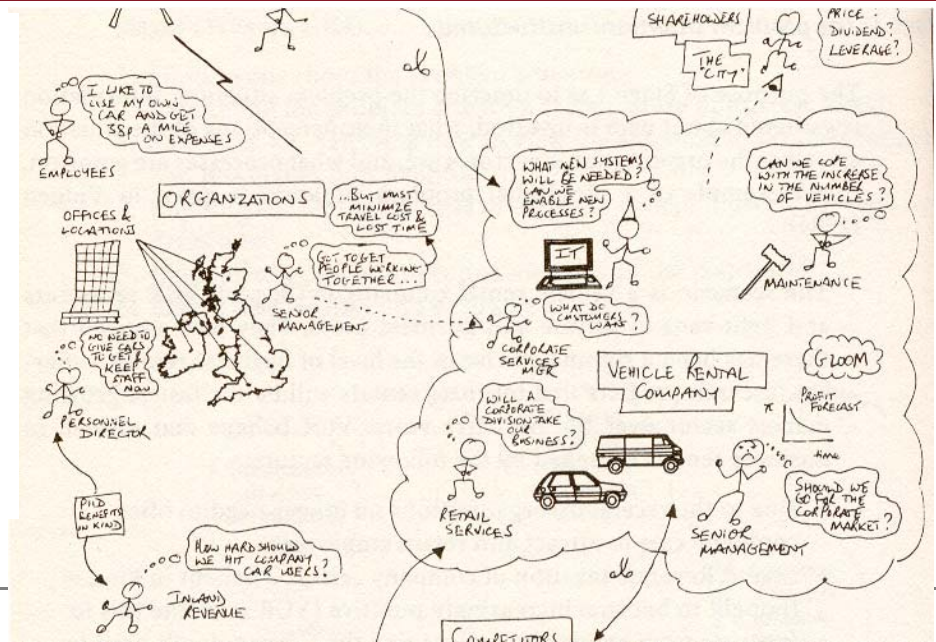 SHAREHOLDERS
THE
"CITY"
PRICE?
DIVIDEND?
LEVERAGE?
I LIKE TO
USE MY OWN
CAR AND GET
38p A MILE
ON EXPENSES
EMPLOYEES
ORGANIZATIONS
OFFICES &
LOCATIONS
...BUT MUST
MINIMIZE
TRAVEL COST &
LOST TIME
GOT TO GET
PEOPLE WORKING
TOGETHER...
SENIOR
MANAGEMENT
NO NEED TO
GIVE CARS
TO GET &
KEEP
STAFF
NOW
PERSONNEL
DIRECTOR
P11D
BENEFITS
IN KIND
HOW HARD SHOULD
WE HIT COMPANY
CAR USERS?
INLAND
REVENUE
WHAT NEW SYSTEMS
WILL BE NEEDED?
CAN WE
ENABLE NEW
PROCESSES?
IT
CAN WE COPE
WITH THE INCREASE
IN THE NUMBER
OF VEHICLES?
MAINTENANCE
WHAT DO
CUSTOMERS
WANT?
CORPORATE
SERVICES
MGR
VEHICLE RENTAL
COMPANY
GLOOM
PROFIT
FORECAST
time
WILL A
CORPORATE
DIVISION TAKE
OUR
BUSINESS?
RETAIL
SERVICES
SENIOR
MANAGEMENT
SHOULD WE
GO FOR THE
CORPORATE
MARKET?
COMPETITORS